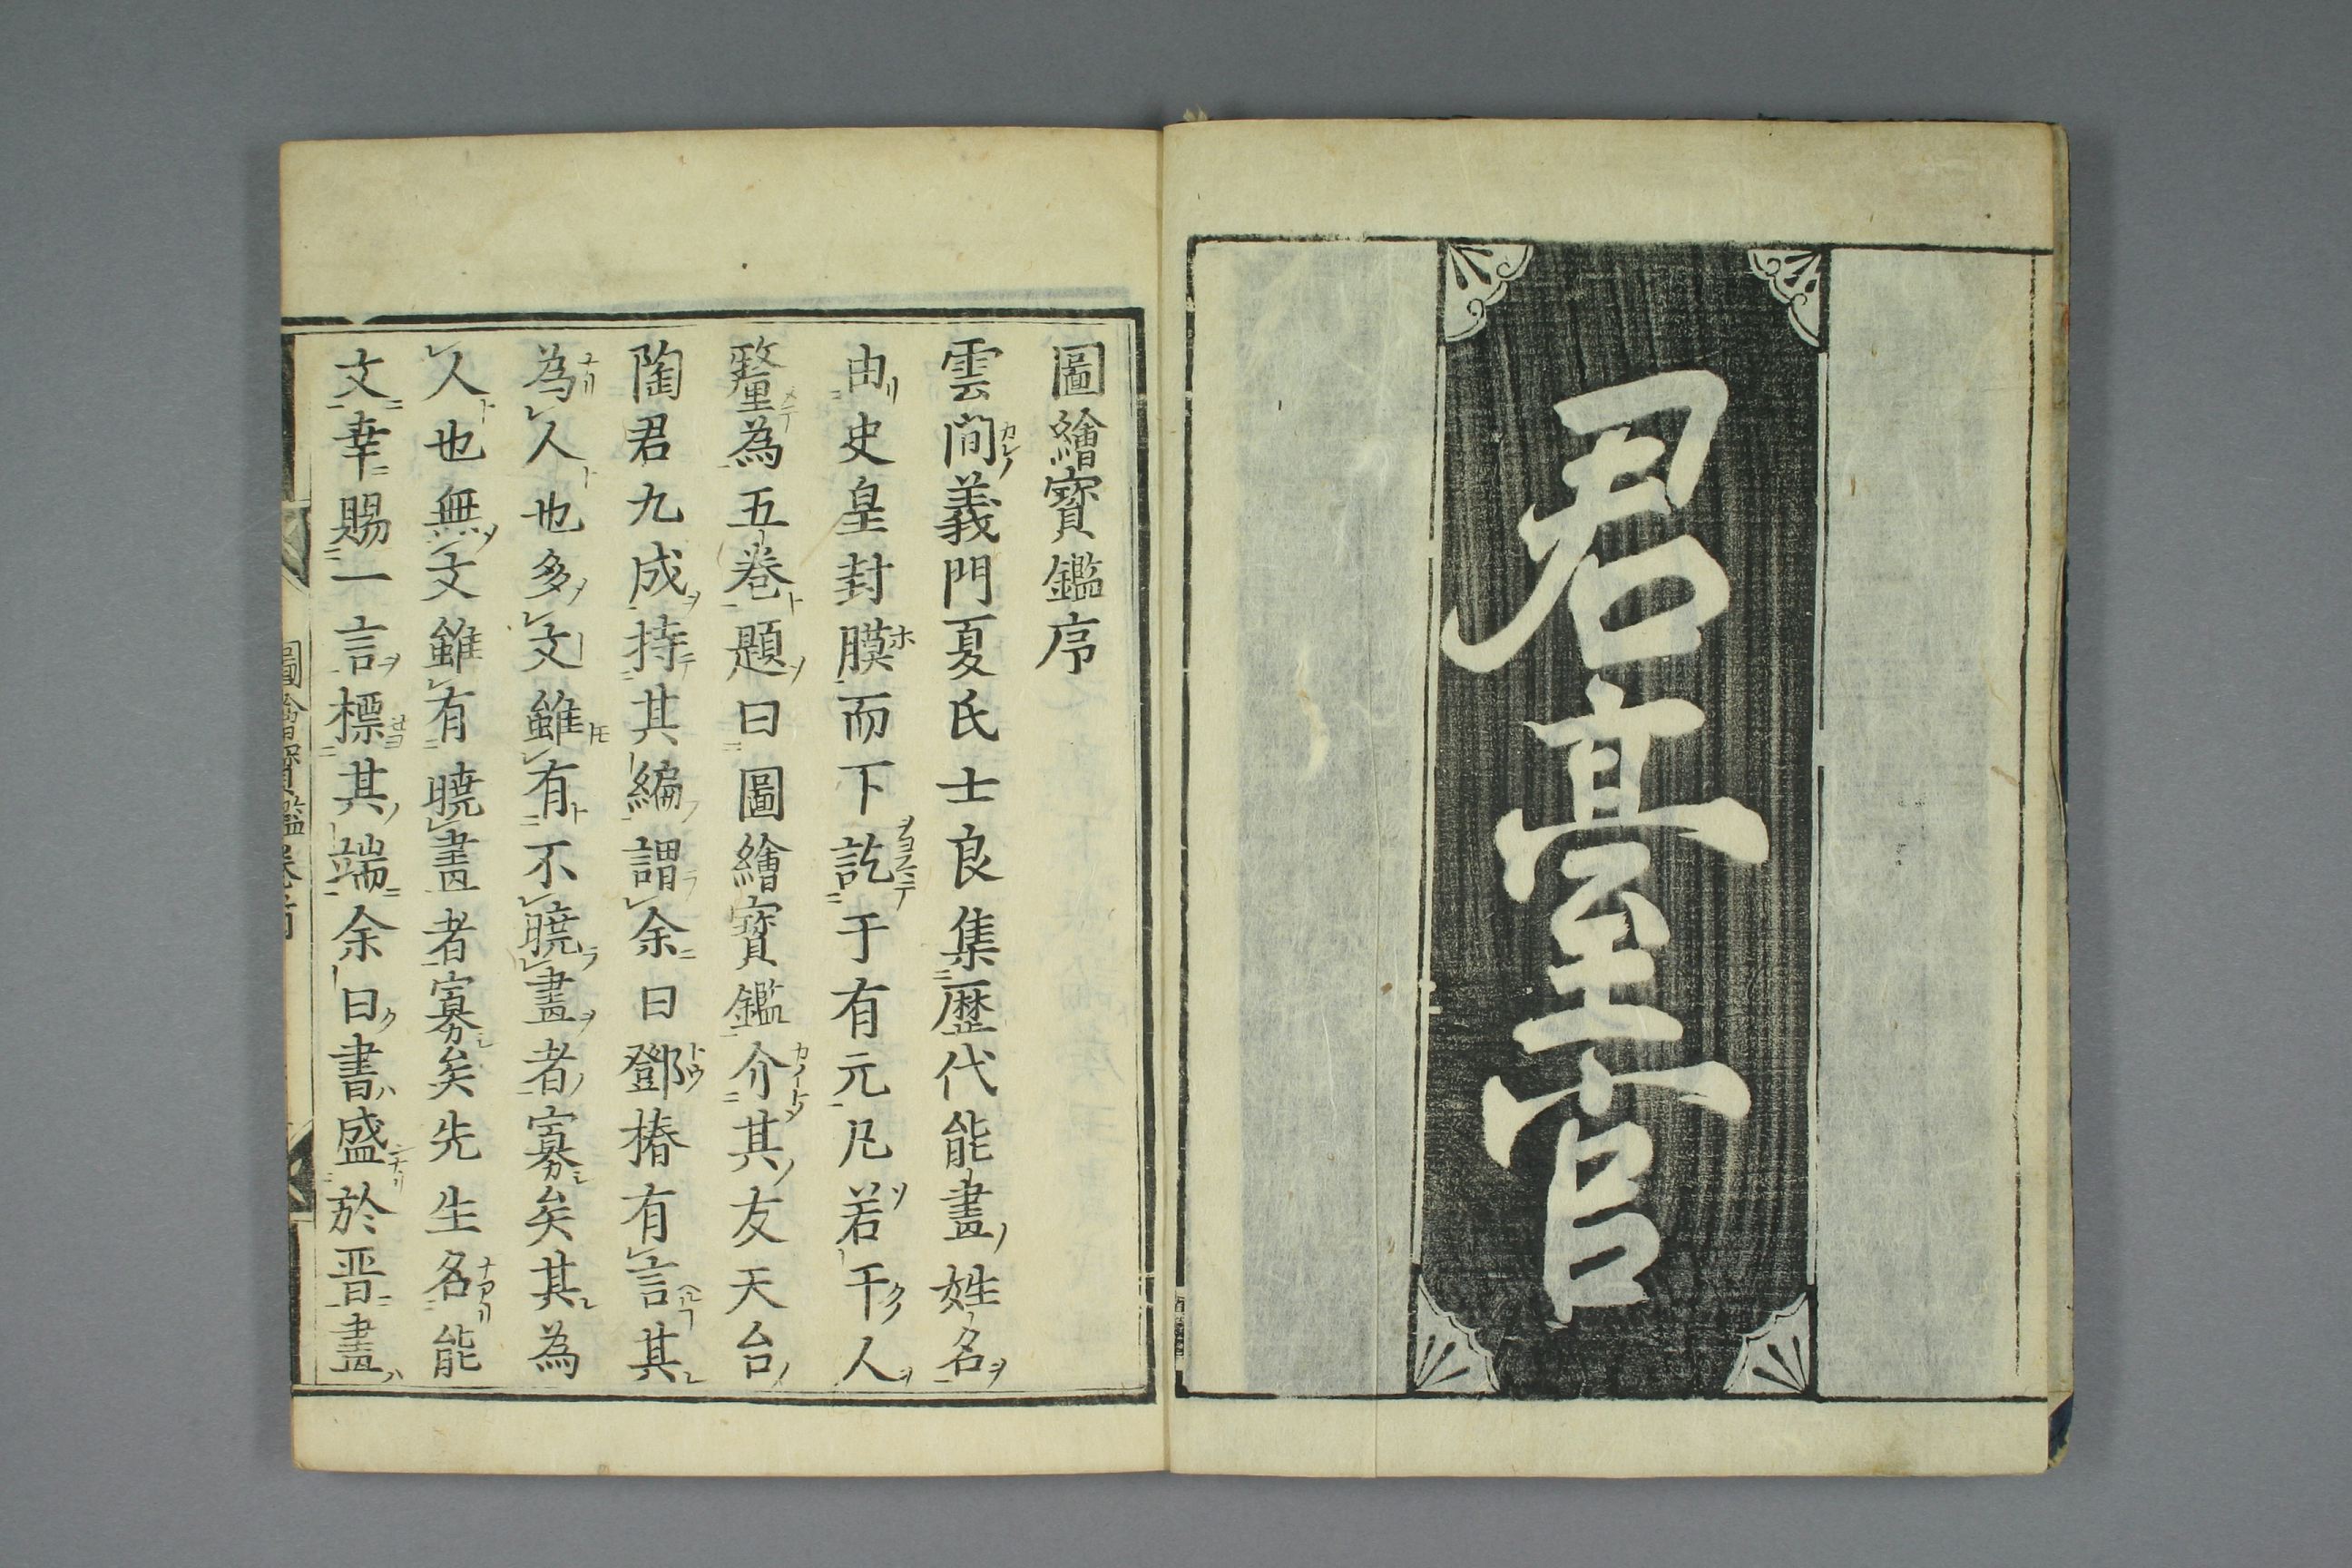 君臺官
圖繪寳鑑序
雲間義門夏氏士良集歷代能畫姓名
由史皇封膜而下訖于有元凡若干人
釐為五巻題曰圖繪寳鑑介其友天台
陶君九成持其編謂余曰鄧椿有言其
為人也多文雖有不曉畫者寡矣其為
人也無文雖有曉畫者寡矣先生名能
文幸賜一言標其端余曰書盛於晋畫
圖繪寳鑑卷首